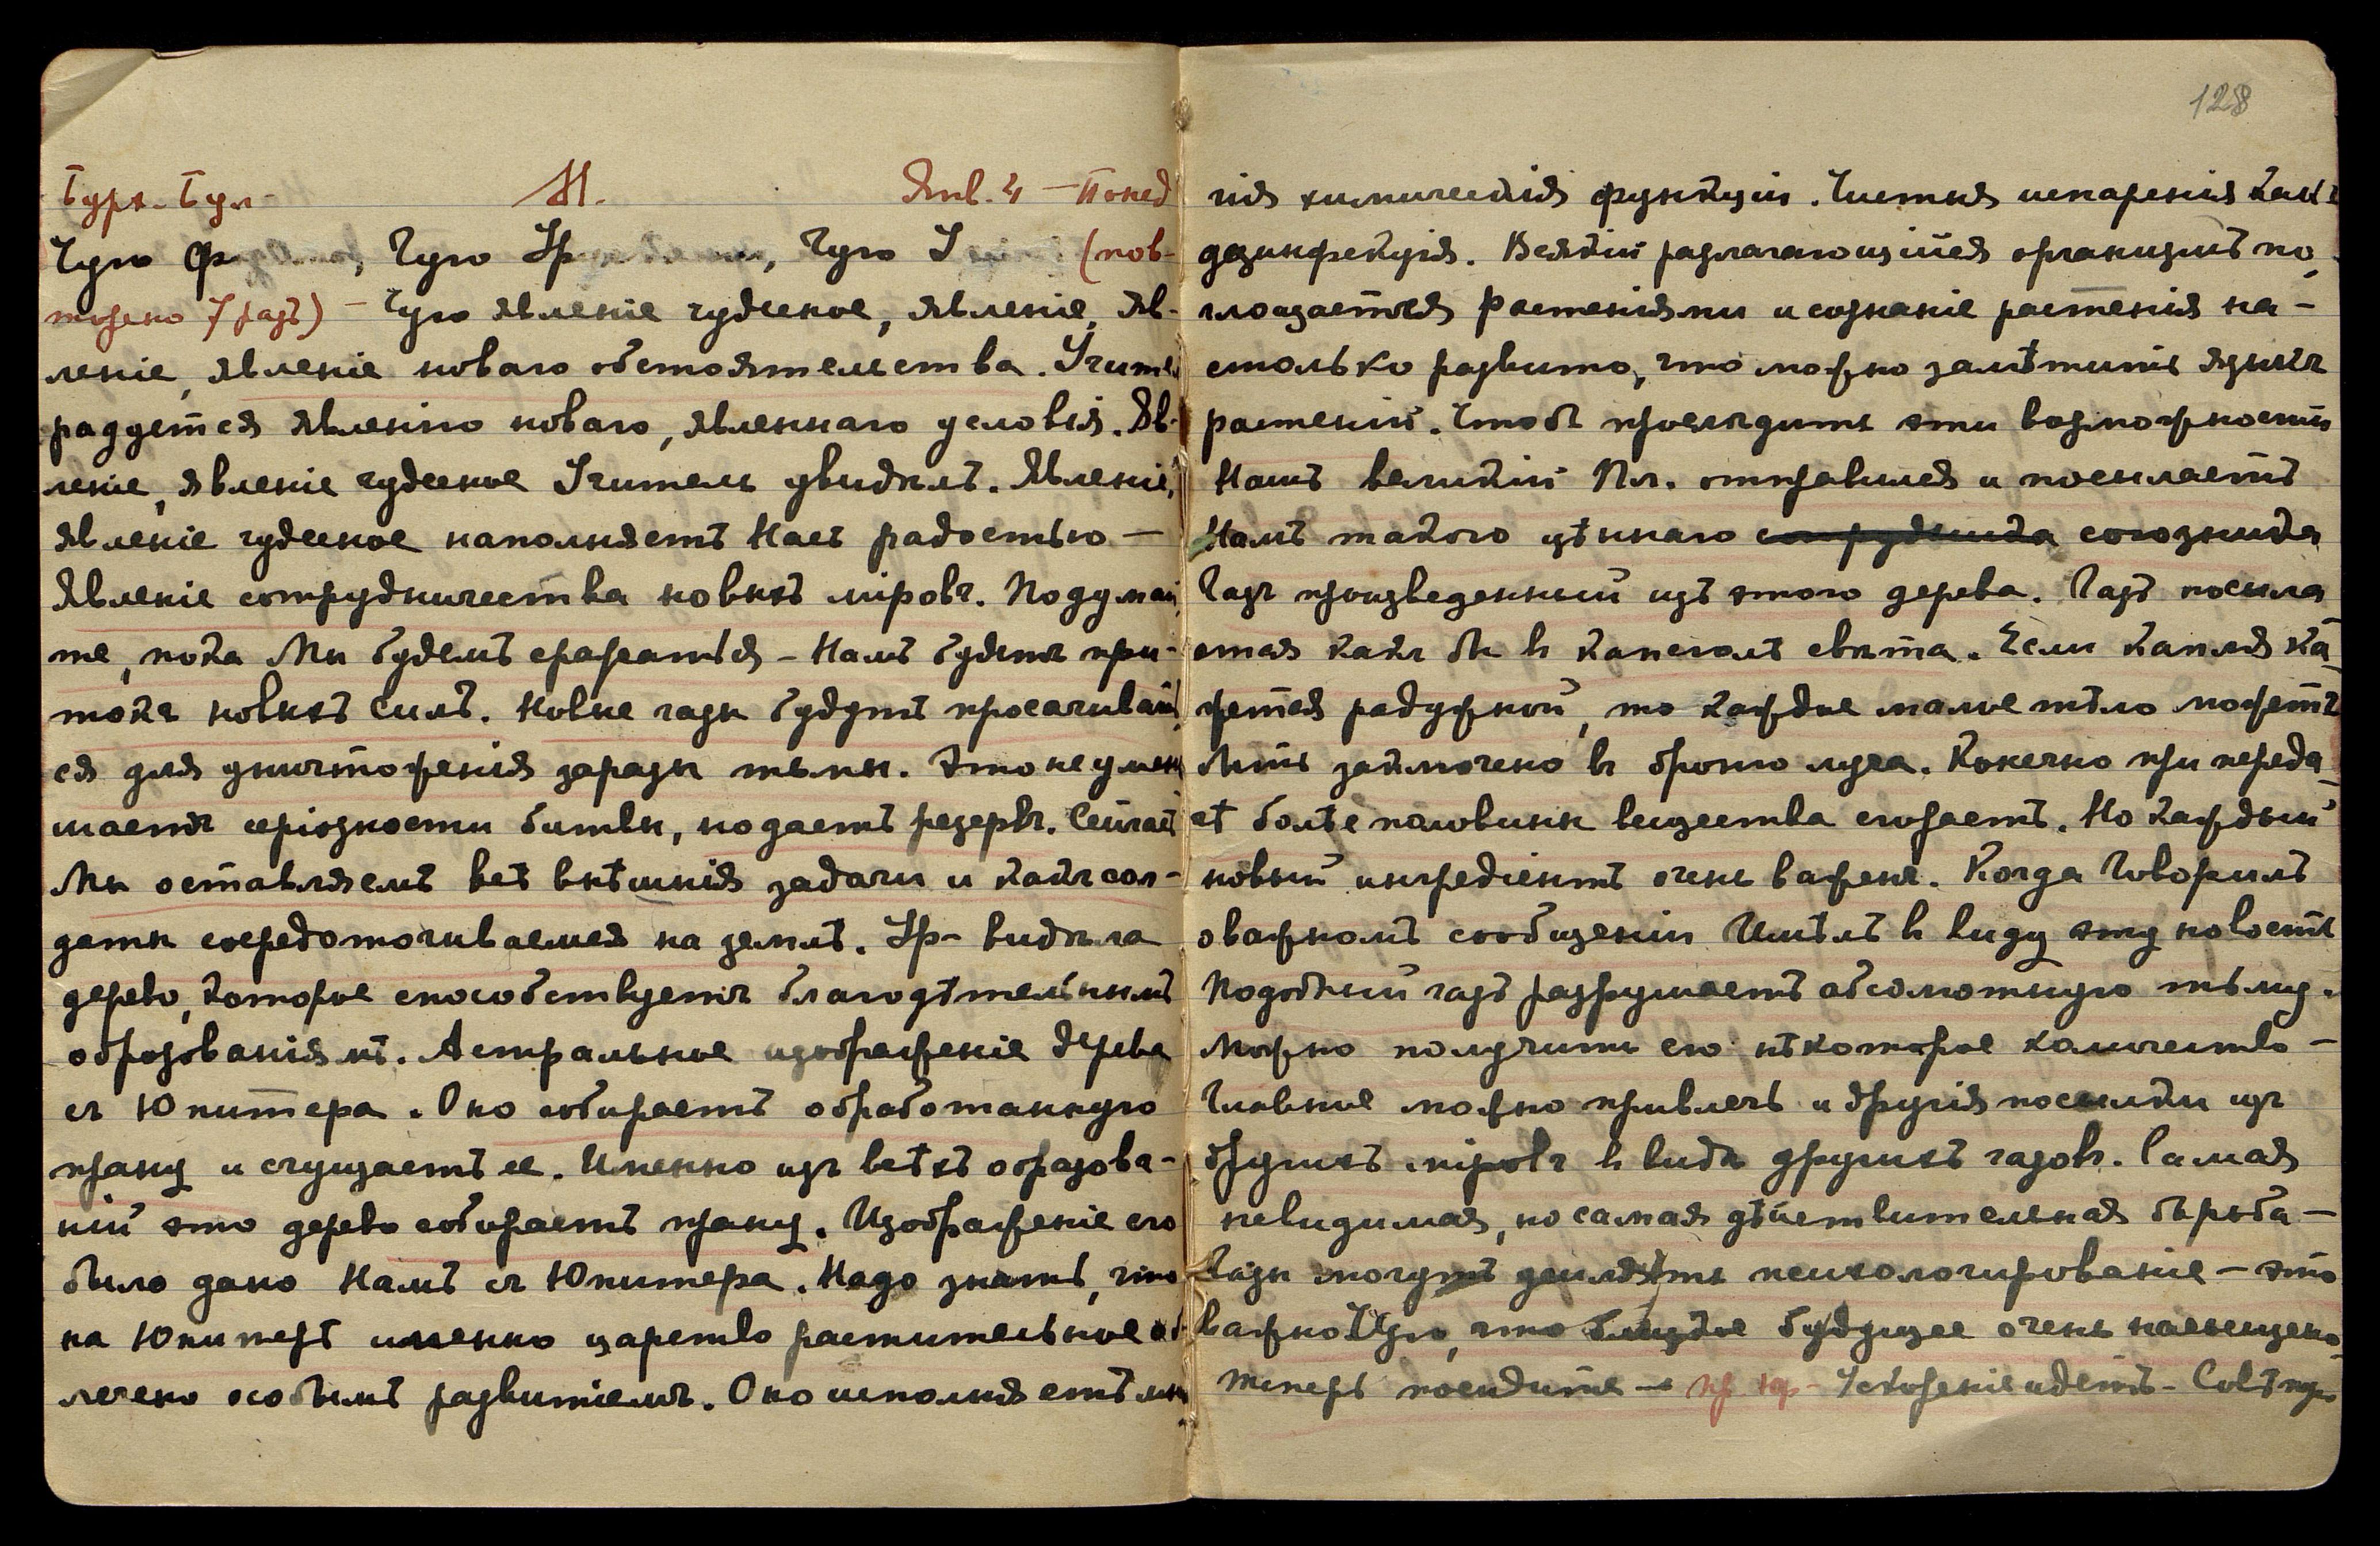 128
Турк. Бум- М. Янв. 4 — Понед
Чую, Чую, Чую (пов-
торено 7 разъ) — Чую явленіе чудесное, явленіе, яв-
леніе, явленіе новаго обстоятельства. Учитель
радуется явленію новаго, явленнаго условія. Яв-
леніе, явленіе чудесное Учитель увидѣлъ. Явленіе,
явленіе чудесное наполняетъ Насъ радостью —
Явленіе сотрудничества новыхъ міровъ. Подумай-
те, пока Мы будемъ сражаться — Намъ будетъ при-
токъ новыхъ Силъ. Новые газы будутъ просачивать
ся для уничтоженія заразы тьмы. Это не умень
шаетъ серіозности битвы, но даетъ резервъ. Сейчасъ
Мы оставляемъ всѣ внѣшнія задачи и какъ сол-
даты сосредоточиваемся на землѣ. Ур- видѣла
дерево, которое способствуетъ благодѣтельнымъ
образованіямъ. Астральное изображеніе дерева
съ Юпитера. Оно собираетъ обработанную
прану и сгущаетъ ее. Именно изъ всѣхъ образова-
ній это дерево собираетъ прану. Изображеніе его
было дано Намъ съ Юпитера. Надо знать, что
на Юпитерѣ именно царство растительное от-
мечено особымъ развитіемъ. Оно исполняетъ мно
гія химическія функціи. Чистыя испаренія какъ
дезинфекція. Всякій разлагающійся организмъ по-
глощается растеніями и сознаніе растенія на-
столько развито, что можно замѣтить языкъ
растеній. Чтобъ прослѣдить эти возможности
Нашъ великій Пл. отправился и посылаетъ
Намъ такого цѣннаго сотрудника союзника
Газъ произведенный изъ этого дерева. Газъ посыла
ется какъ бы въ капсюлѣ свѣта. Если капля ка-
жется радужной, то каждое малое тѣло можетъ
быть заключено въ броню луча. Конечно при переда-
чѣ болѣе половины вещества сгораетъ. Но каждый
новый ингредіентъ очень важенъ. Когда Говорилъ
о важномъ сообщеніи Имѣлъ въ виду эту новость
Подобный газъ разрушаетъ абсолютную тьму.
Можно получить его нѣкоторое количество —
Главное можно привлечь и другія посылки изъ
другихъ міровъ въ видѣ другихъ газовъ. Самая
невидимая, но самая дѣйствительная борьба —
Газы могутъ усилять психологированіе — это
важно Чую, что будущее очень насыщено
Теперь посидите — Ускореніе идетъ. Совѣтъ